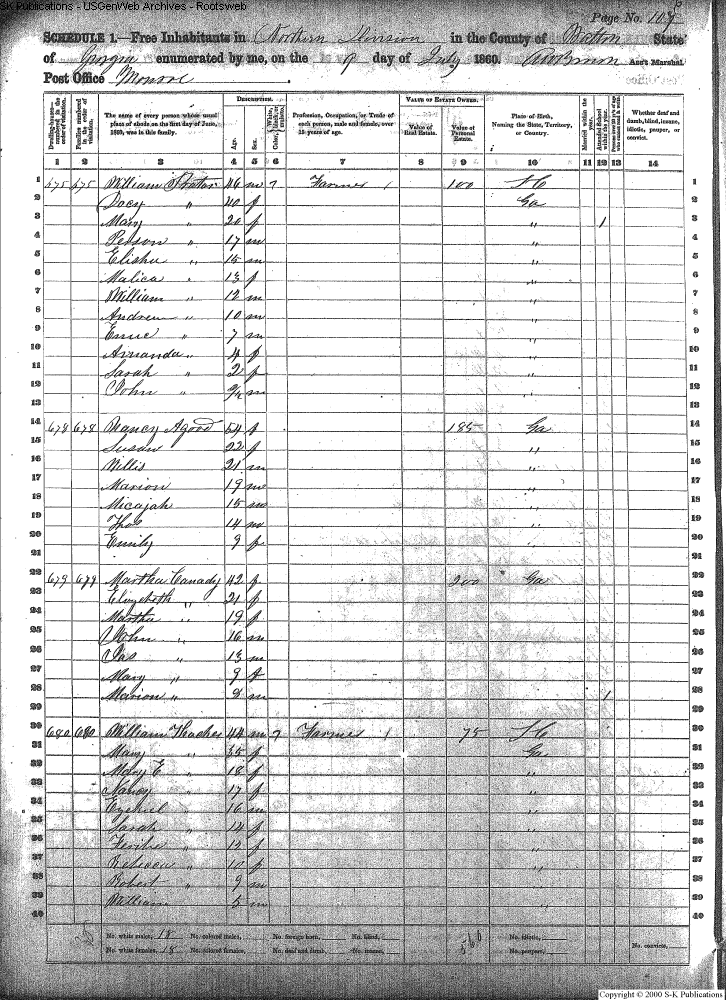 S-K Publications - USGenWeb Archives - Rootsweb
Page No. 107
SCHEDULE 1.—Free Inhabitants in Northern Division in the County of Walton State
of Georgia enumerated by me, on the 9 day of July 1860. Ass't Marshal.
Post Office Monroe
Dwelling-houses—numbered in the order of visitation.
Families numbered in the order of visitation.
The name of every person whose usual place of abode on the first day of June, 1860, was in this family.
DESCRIPTION.
Age.
Sex.
Color, White, black, or mulatto.
Profession, Occupation, or Trade of each person, male and female, over 15 years of age.
VALUE OF ESTATE OWNED.
Value of Real Estate.
Value of Personal Estate.
Place of Birth, Naming the State, Territory, or Country.
Married within the year.
Attended School within the year.
Whether deaf and dumb, blind, insane, idiotic, pauper, or convict.
1 2 3 4 5 6 7 8 9 10 11 12 13 14
1 William 46 m Farmer 1 100 1
2 " 40 f Ga 2
3 Mary " 20 f " 1 3
4 Person " 17 m " 4
5 Elisha " 15 m " 5
6 Malica " 13 f " 6
7 William " 12 m " 7
8 Andrew " 10 m " 8
9 " 7 m " 9
10 Amanda " 4 f " 10
11 Sarah " 2 f " 11
12 John " m " 12
13 13
14 678 678 Nancy Agood 54 f 185 Ga 14
15 Susan 22 f " 15
16 Willis 21 m " 16
17 Marion 19 m " 17
18 Micajah 15 m " 18
19 Thos 14 m " 19
20 Emily 9 f " 20
21 21
22 679 679 Martha Canady 42 f 200 Ga 22
23 Elizabeth " 21 f 23
24 Martha " 19 f 24
25 John " 16 m 25
26 Jas " 13 m 26
27 Mary " 9 f 27
28 Marion " 8 m 1 28
29 29
30 680 680 William 44 m Farmer 1 75 30
31 Mary " 35 f Ga 31
32 Mary E " 18 f " 32
33 Nancy " 17 f " 33
34 Ezekiel " 16 m " 34
35 Sarah " 14 f " 35
36 " 12 f " 36
37 Rebecca " 10 f " 37
38 Robert " 9 m 38
39 William 5 m 39
40 40
No. white males, 18 No. colored males, No. foreign born, No. blind, 560 No. idiotic,
No. white females, 18 No. colored females, No. deaf and dumb, No. insane, No. pauper, No. convicts,
Copyright © 2000 S-K Publications